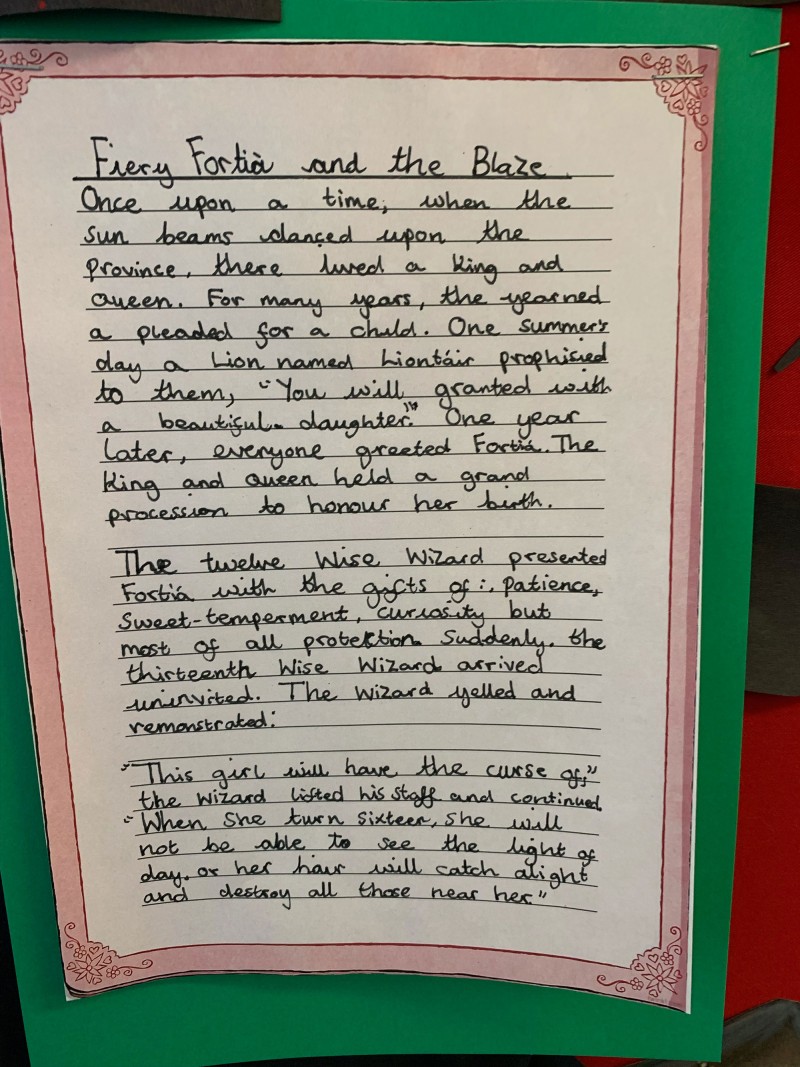 Fiery Fortià and the Blaze
Once upon a time, when the
sun beams danced upon the
province, there lived a king and
queen. For many years, the yearned
a pleaded for a child. One summer's
day a Lion named Liontáir prophisied
to them, "You will granted with
a beautiful daughter." One year
later, everyone greeted Fortiá. The
king and queen held a grand
procession to honour her birth.
The twelve Wise Wizard presented
Fortiá with the gifts of:, Patience,
Sweet-temperment, curiosity but
most of all protection. Suddenly, the
thirteenth Wise Wizard arrived
uninvited. The wizard yelled and
remonstrated:
"This girl will have the curse of,"
the wizard lifted his staff and continued.
"When she turn sixteen, she will
not be able to see the light of
day, or her hair will catch alight
and destroy all those near her."